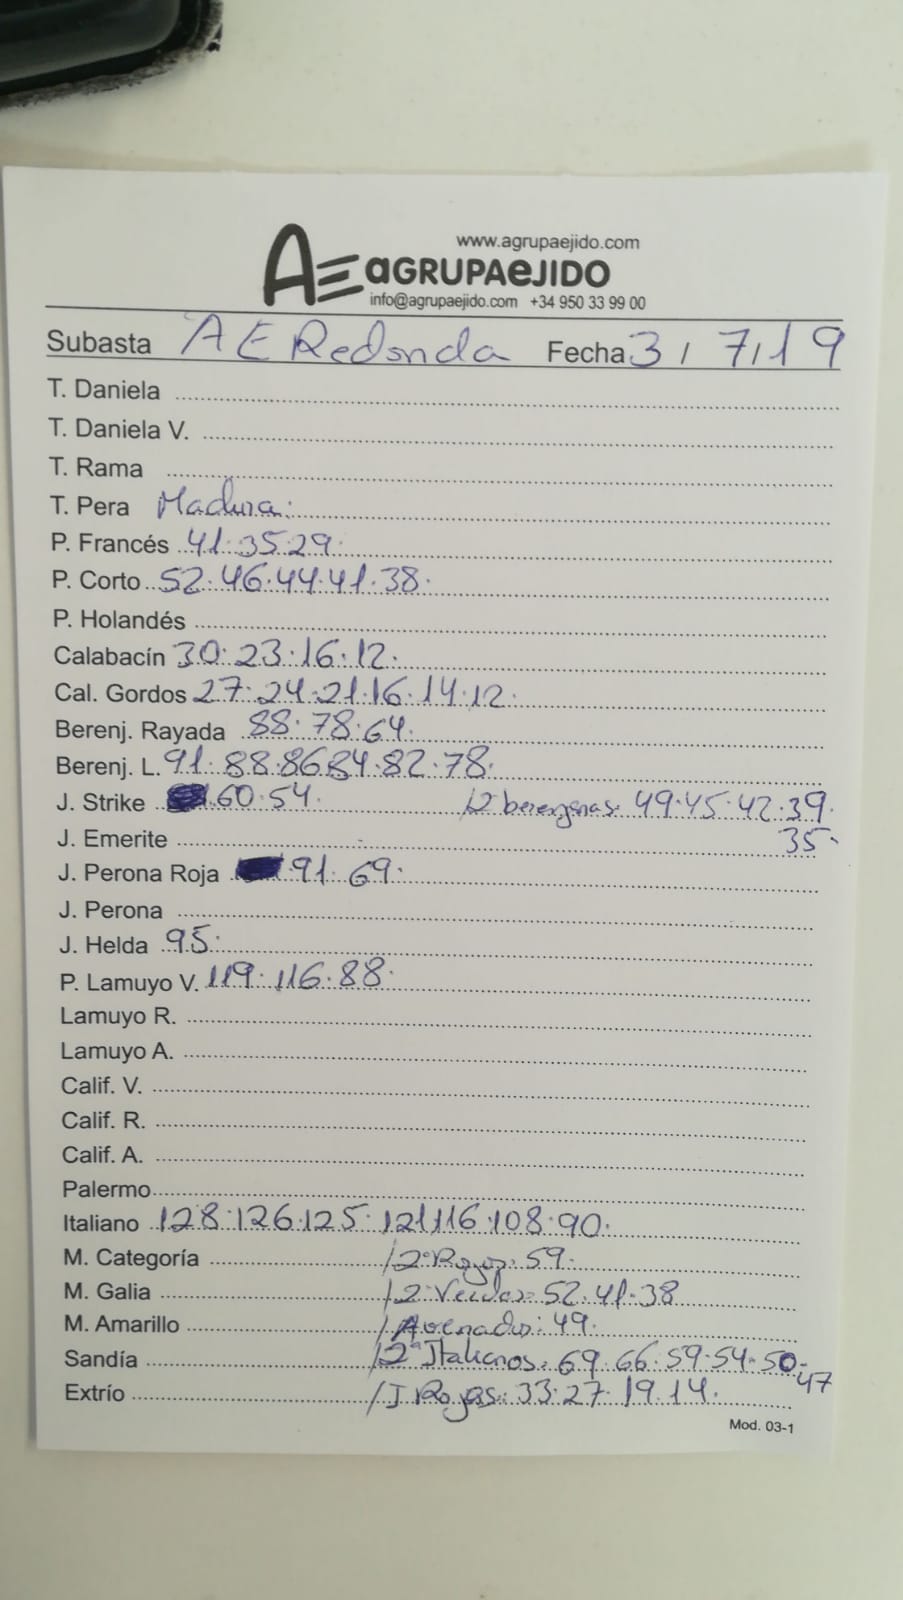 www.agrupaejido.com
AE aGRUPAeJIDO
info@agrupaejido.com +34 950 33 99 00
Subasta AE Redonda Fecha 3 / 7 / 19
T. Daniela
T. Daniela V.
T. Rama
T. Pera Madura:
P. Francés 41. 35. 29.
P. Corto 52. 46. 44. 41. 38.
P. Holandés
Calabacín 30. 23. 16. 12.
Cal. Gordos 27. 24. 21. 16. 14. 12.
Berenj. Rayada 88. 78. 64.
Berenj. L. 91. 88. 86 84. 82. 78.
J. Strike 60. 54. /2ª berenjenas. 49. 45. 42. 39.
J. Emerite 35.
J. Perona Roja 91. 69.
J. Perona
J. Helda 95.
P. Lamuyo V. 119. 116. 88.
Lamuyo R.
Lamuyo A.
Calif. V.
Calif. R.
Calif. A.
Palermo
Italiano 128. 126. 125. 121. 116. 108. 90.
M. Categoría /2ª Rojos: 59.
M. Galia /2ª Verdes: 52. 41. 38
M. Amarillo / Asenados: 49.
Sandía /2ª Italianos. 69. 66. 59. 54. 50.
47
Extrío /I Rojas: 33. 27. 19. 14.
Mod. 03-1